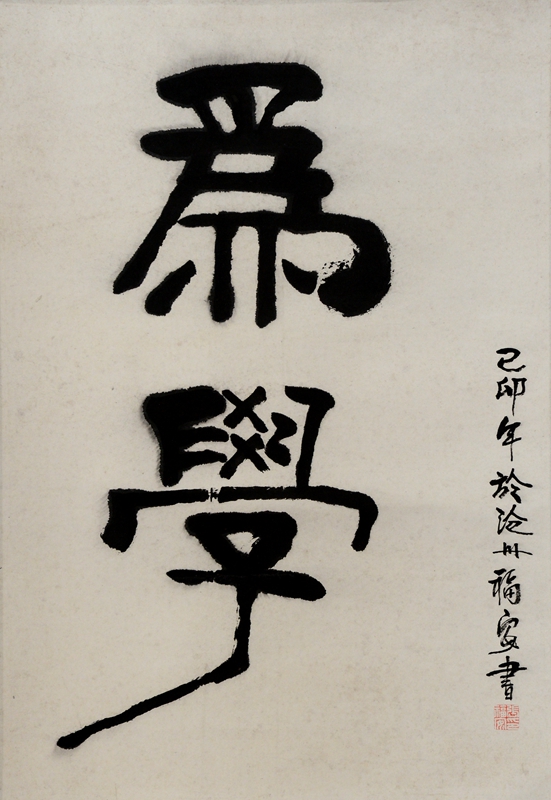 為學
己卯年於沧州福安書